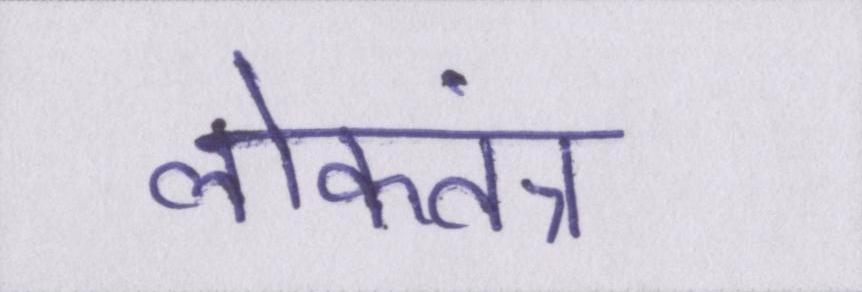 लोकतंत्र